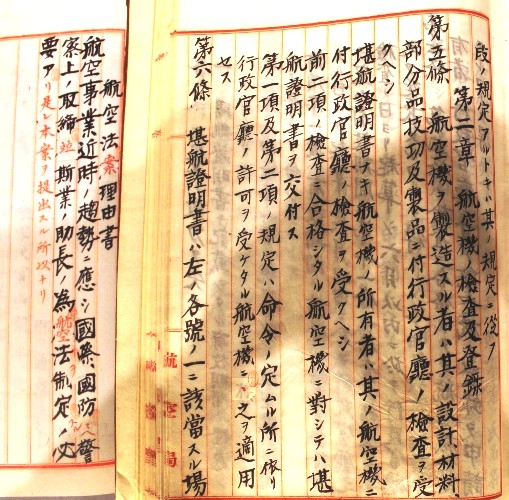 段ノ規定アルトキハ其ノ規定ニ從フ
第二章 航空機ノ檢査及登録
第五條 航空機ヲ製造スル者ハ其ノ設計、材料
部分品技功及製品ニ付行政官廳ノ檢査ヲ受
クヘシ
堪航證明書ヲキ航空機ノ所有者ハ其ノ航空機ニ
付行政官廳ノ檢査ヲ受クヘシ
前二項ノ檢査ニ合格シタル航空機ニ對シテハ堪
航證明書ヲ交付ス
第一項及第二項ノ規定ハ命令ノ定ムル所ニ依リ
行政官廳ノ許可ヲ受ケタル航空機ニ之ヲ適用
セス
第六條 堪航證明書ハ左ノ各號ノ一ニ該當スル場
航空局
航空法案理由書
航空事業近時ノ趨勢ニ應シ國際、國防
警察上ノ取締竝斯業ノ助長ノ為航空法制定ノ必
要アリ是レ本案ヲ提出スル所以ナリ